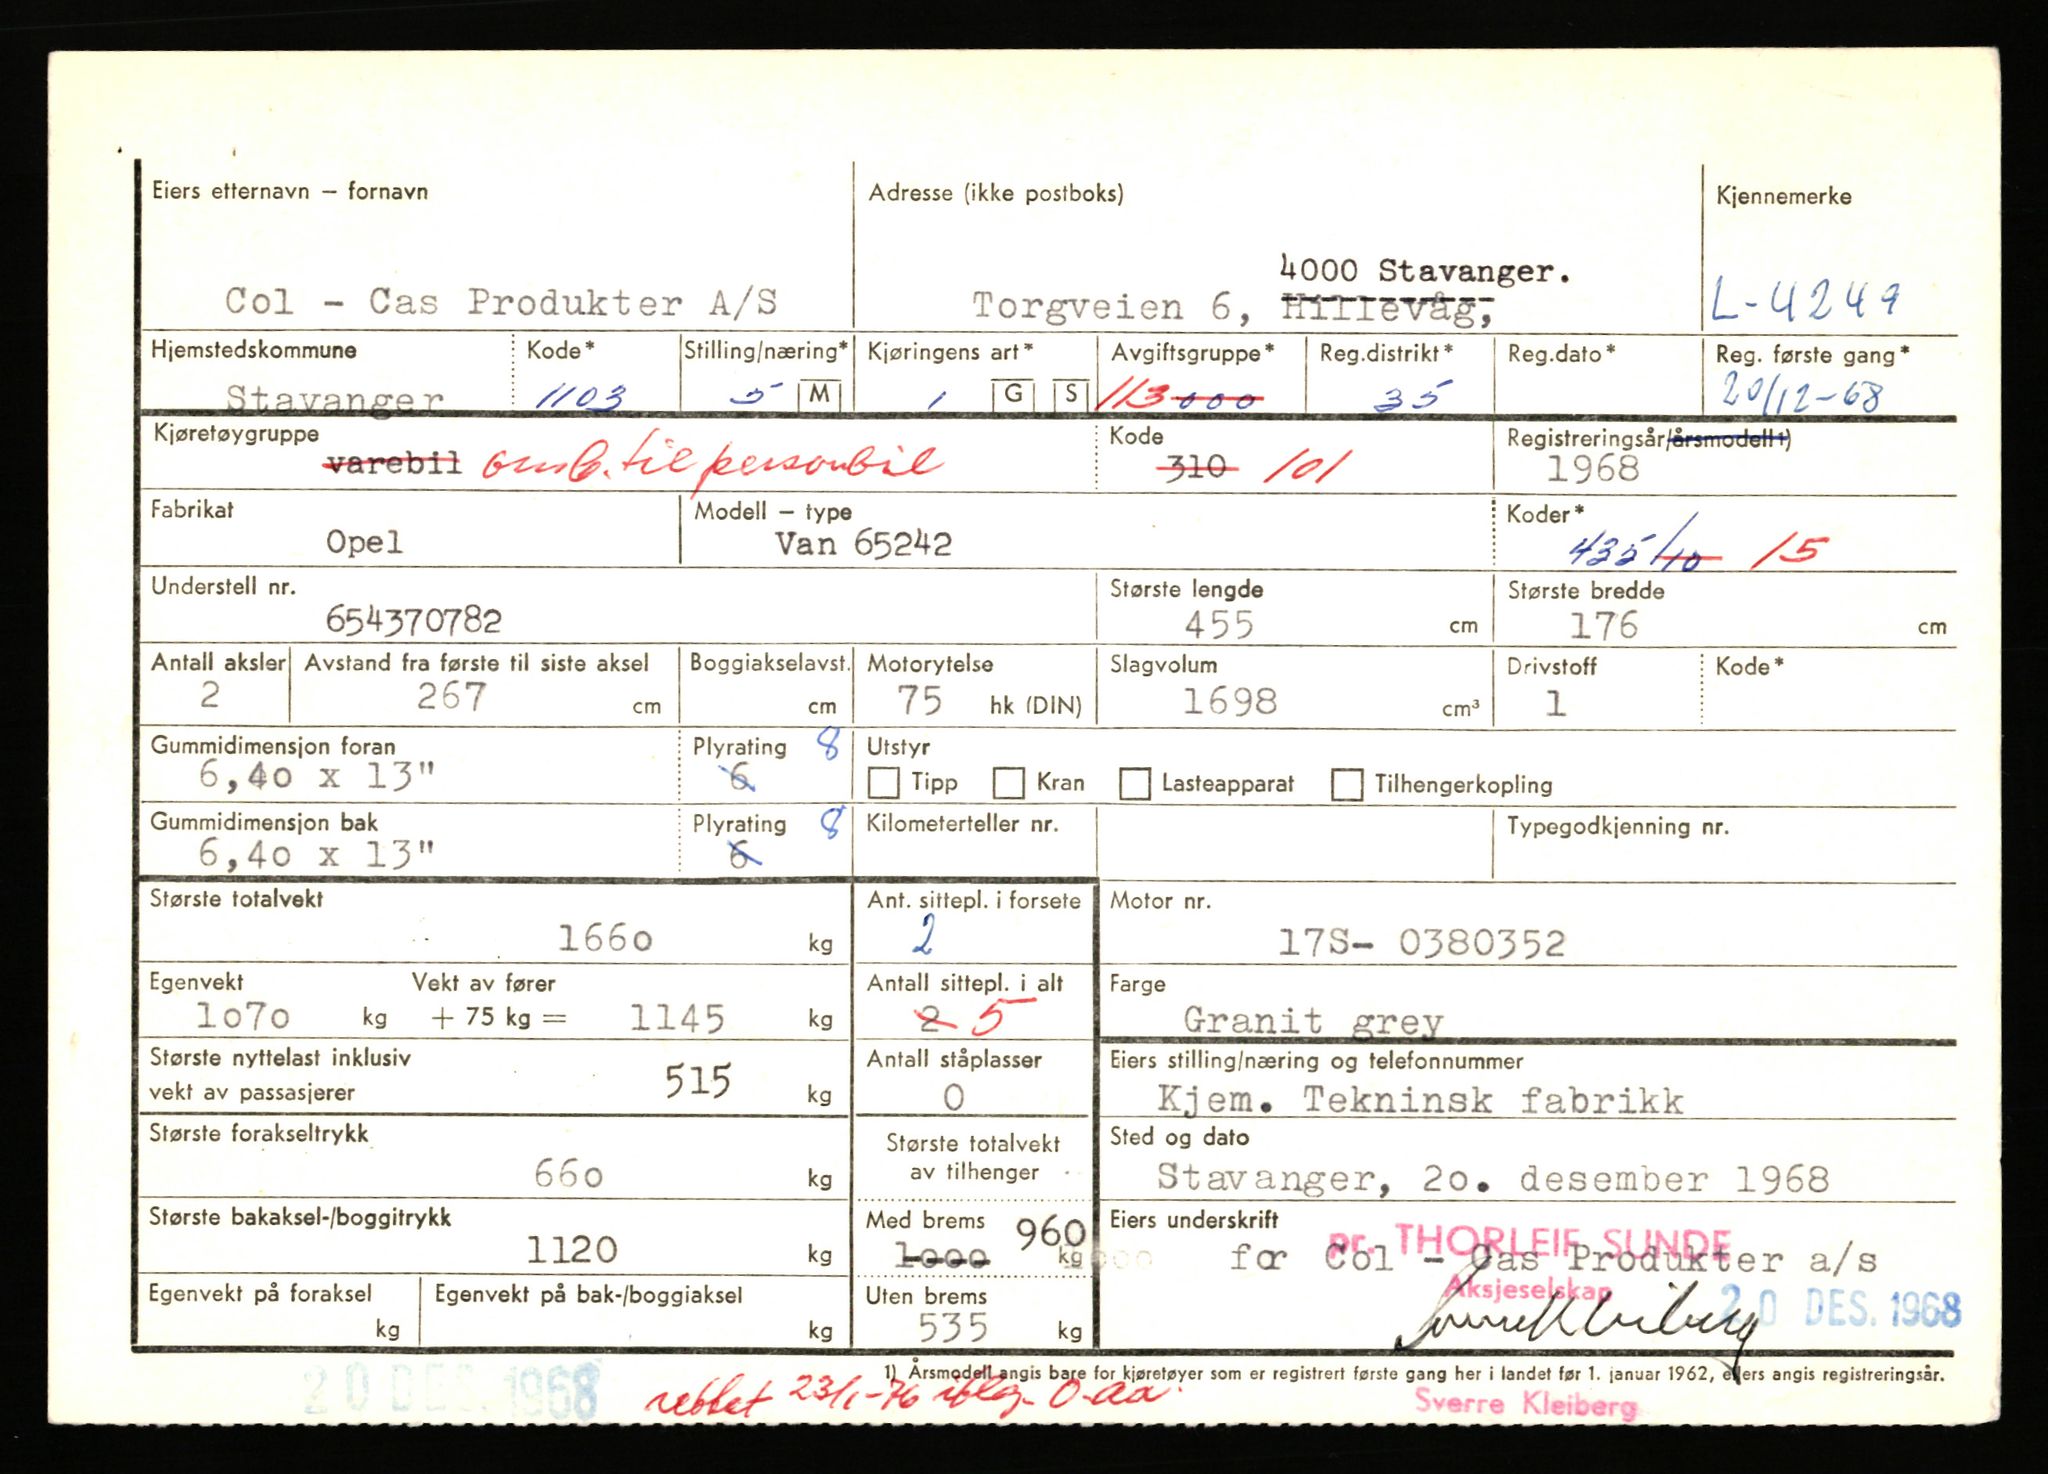 Eiers etternavn – fornavn Adresse (ikke postboks) Kjennemerke
4000 Stavanger.
Col - Cas Produkter A/S Torgveien 6, Hillevåg, L-4249
Hjemstedskommune Kode* Stilling/næring* Kjøringens art* Avgiftsgruppe* Reg.distrikt* Reg.dato* Reg. første gang*
Stavanger 1103 5 M 1 G S 113 000 35 20/12-68
Kjøretøygruppe Kode Registreringsår/årsmodell 1)
varebil omb. til personbil 310 101 1968
Fabrikat Modell – type Koder*
Opel Van 65242 435/10 15
Understell nr. Største lengde Største bredde
654370782 455 cm 176 cm
Antall aksler Avstand fra første til siste aksel Boggiakselavst. Motorytelse Slagvolum Drivstoff Kode*
2 267 cm cm 75 hk (DIN) 1698 cm³ 1
Gummidimensjon foran Plyrating 8 Utstyr
6,40 x 13" 6 Tipp Kran Lasteapparat Tilhengerkopling
Gummidimensjon bak Plyrating 8 Kilometerteller nr. Typegodkjenning nr.
6,40 x 13" 6
Største totalvekt Ant. sittepl. i forsete Motor nr.
1660 kg 2 17S- 0380352
Egenvekt Vekt av fører Antall sittepl. i alt Farge
1070 kg + 75 kg = 1145 kg 2 5 Granit grey
Største nyttelast inklusiv Antall ståplasser Eiers stilling/næring og telefonnummer
vekt av passasjerer 515 kg 0 Kjem. Tekninsk fabrikk
Største forakseltrykk Største totalvekt Sted og dato
660 kg av tilhenger Stavanger, 20. desember 1968
Største bakaksel-/boggitrykk Med brems 960 Eiers underskrift pr. THORLEIF SUNDE
1120 kg 1000 kg for Col - Cas Produkter a/s
Aksjeselskap
Egenvekt på foraksel Egenvekt på bak-/boggiaksel Uten brems Sverre Kleiberg 20 DES. 1968
kg kg 535 kg
1) Årsmodell angis bare for kjøretøyer som er registrert første gang her i landet før 1. januar 1962, ellers angis registreringsår.
20 DES. 1968 rettet 23/1-76
Sverre Kleiberg